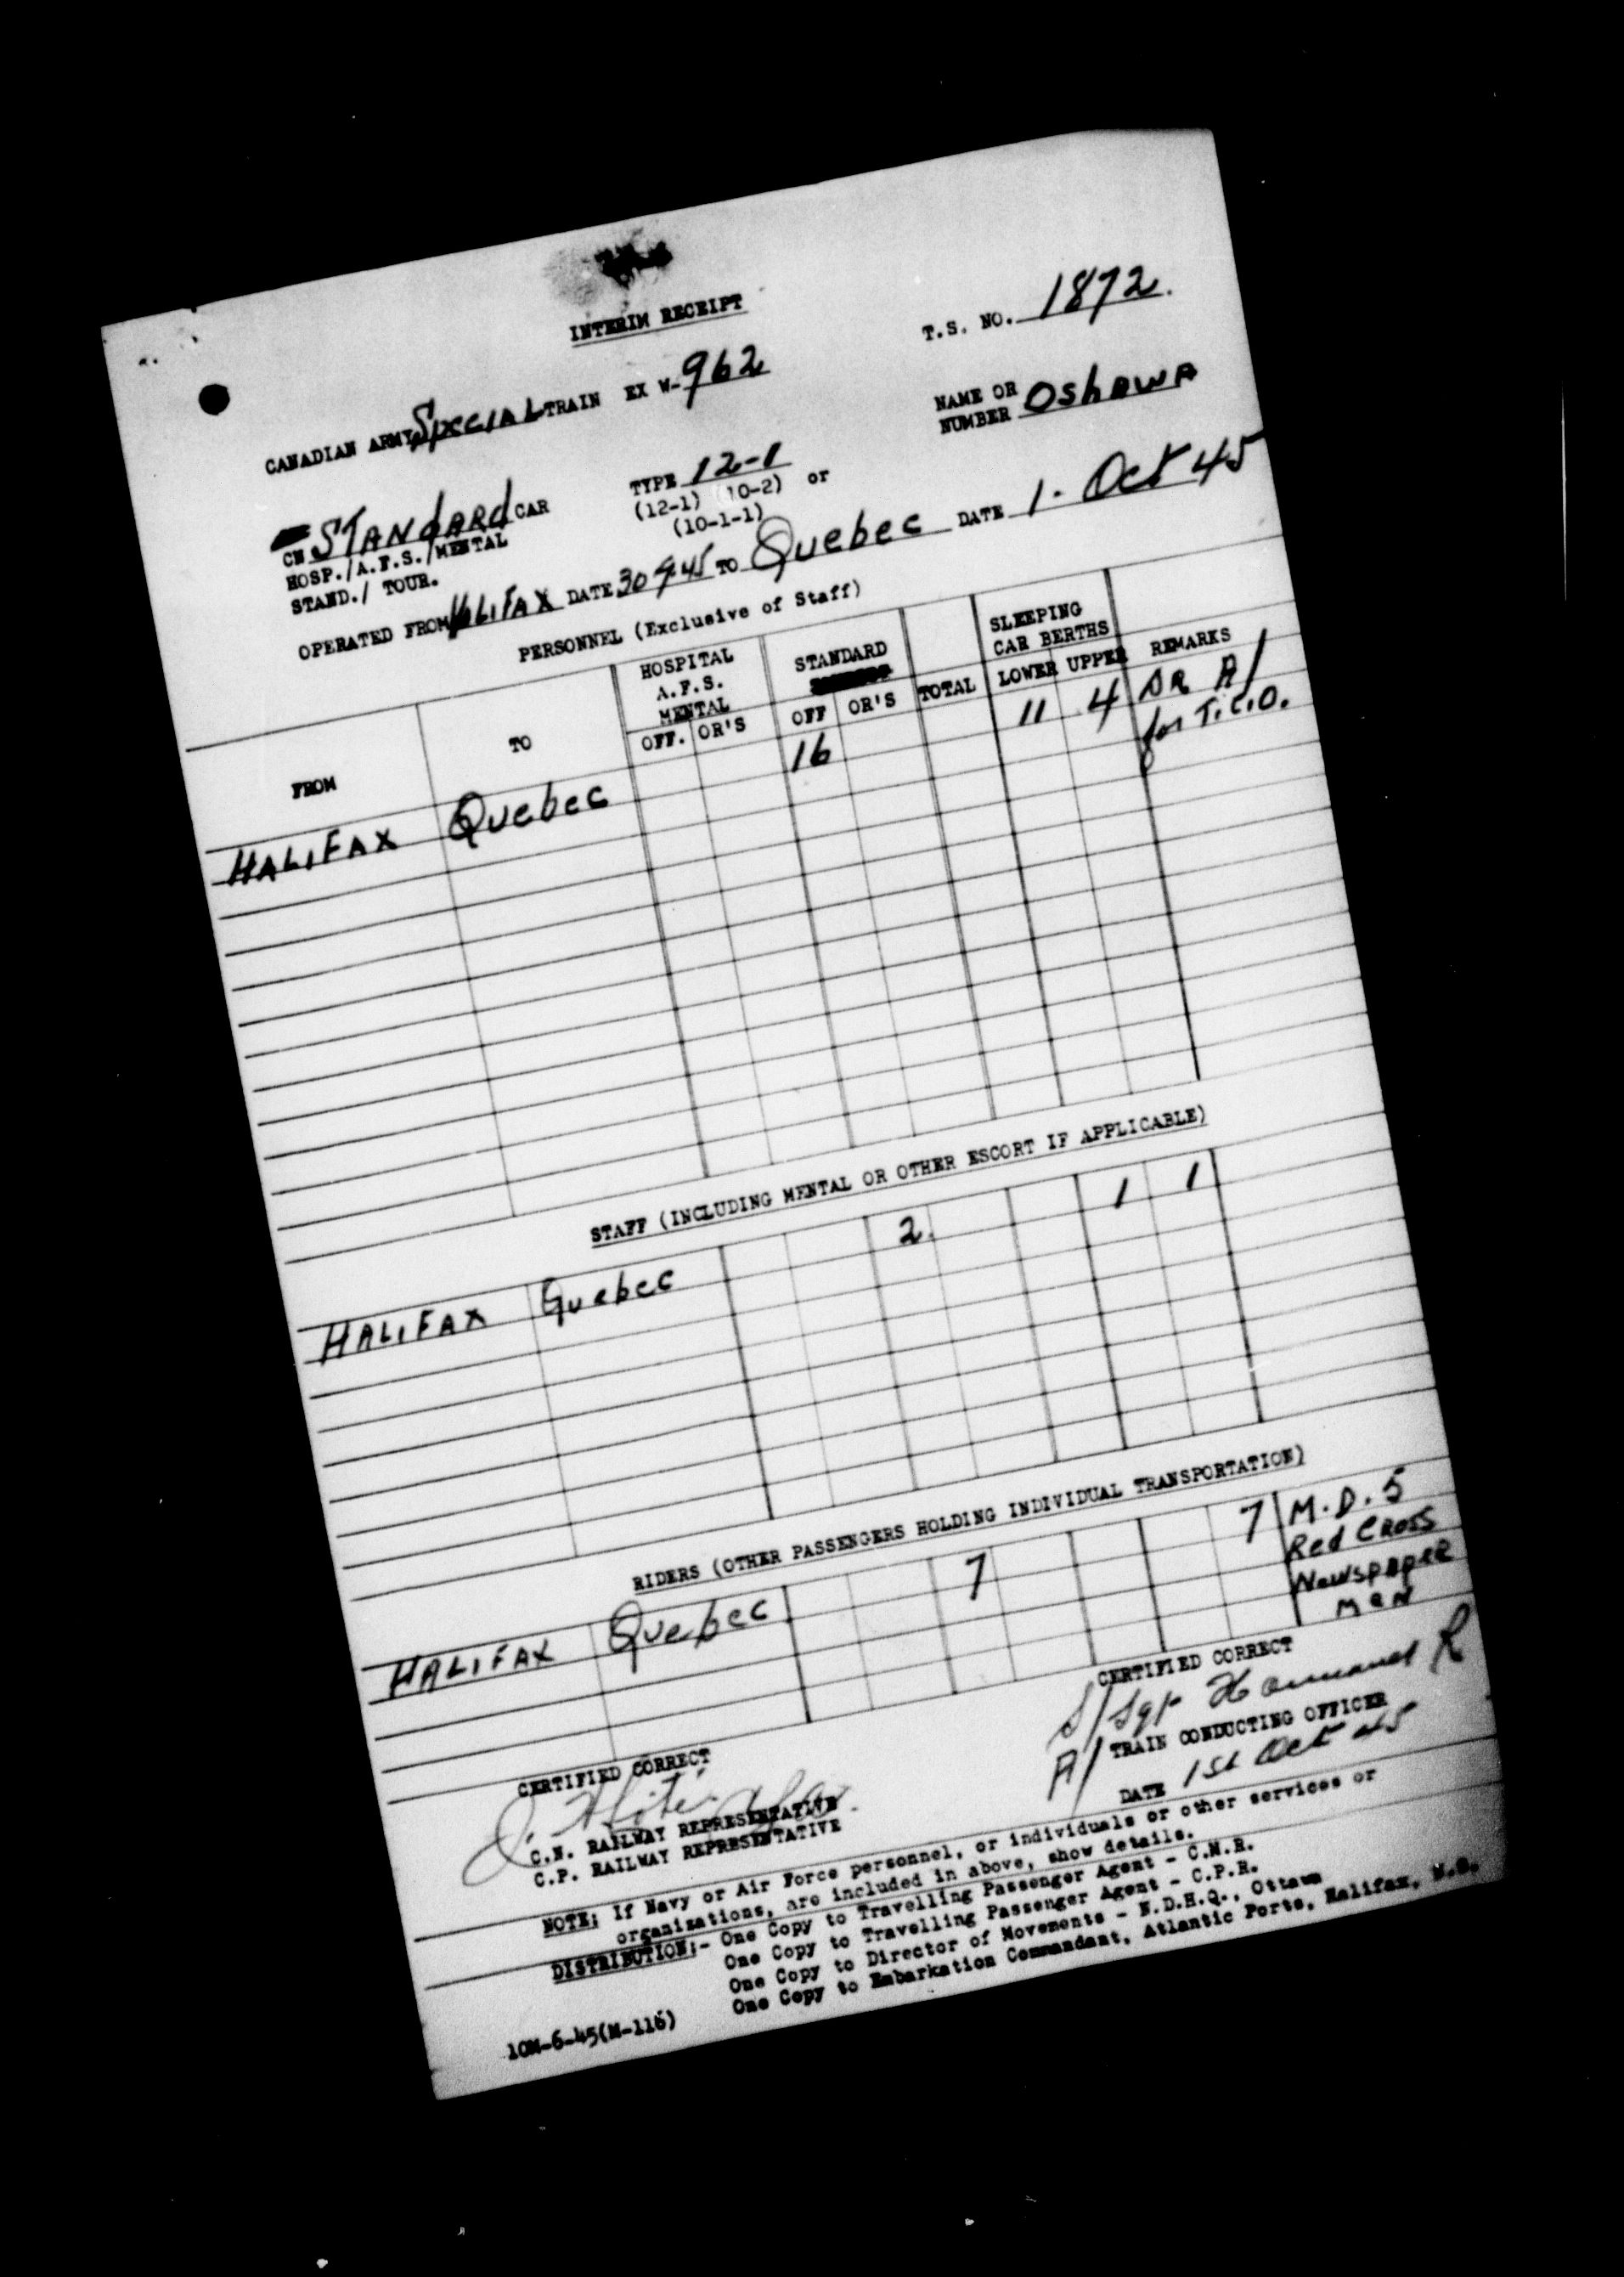 INTERIM RECEIPT
T.S. NO. 1872.
CANADIAN ARMY SpeciAL TRAIN EX W- 962
NAME OR
NUMBER OshAWA
CN STANdARd CAR
HOSP./A.F.S./MENTAL
STAND./ TOUR.
TYPE 12-1
(12-1) (10-2) or
(10-1-1)
OPERATED FROM HALIFAX DATE 30 9 45 TO Quebec DATE 1. Oct 45
PERSONNEL (Exclusive of Staff)
FROM TO HOSPITAL A.F.S. MENTAL STANDARD TOTAL SLEEPING CAR BERTHS REMARKS
OFF. OR'S OFF OR'S LOWER UPPER
HALIFAX Quebec 16 11 4 DR A/
for T.C.O.
STAFF (INCLUDING MENTAL OR OTHER ESCORT IF APPLICABLE)
HALIFAX Quebec 2. 1 1
RIDERS (OTHER PASSENGERS HOLDING INDIVIDUAL TRANSPORTATION)
HALIFAX Quebec 7 7 M.D.5
Red CROSS
NewspApeR
MaN
CERTIFIED CORRECT
C.N. RAILWAY REPRESENTATIVE
C.P. RAILWAY REPRESENTATIVE
CERTIFIED CORRECT
S/Sgt R
A/ TRAIN CONDUCTING OFFICER
DATE 1st Oct 45
NOTE: If Navy or Air Force personnel, or individuals or other services or
organizations, are included in above, show details.
DISTRIBUTION:- One Copy to Travelling Passenger Agent - C.N.R.
One Copy to Travelling Passenger Agent - C.P.R.
One Copy to Director of Movements - N.D.H.Q., Ottawa
One Copy to Embarkation Commandant, Atlantic Ports, Halifax, N.S.
10M-6-45(M-116)